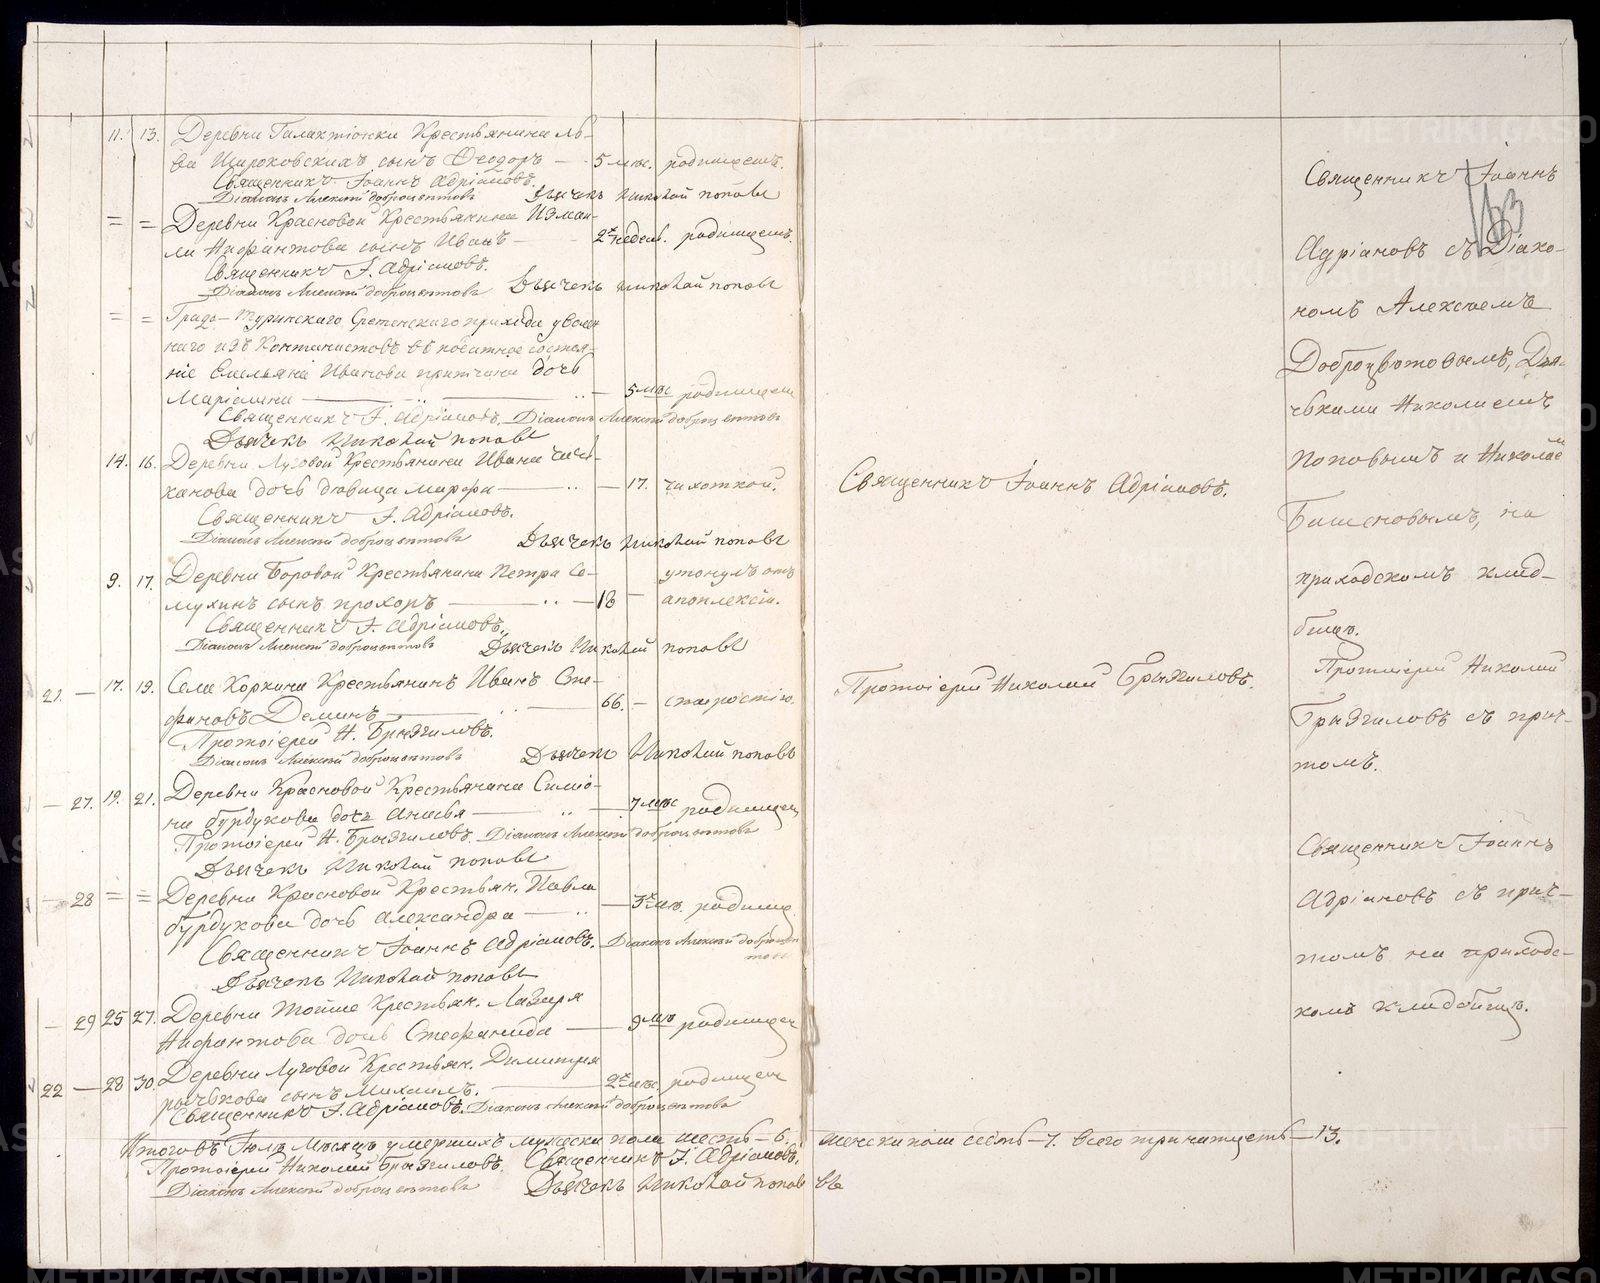 11. 13. Деревни Галактіонки Крестьянина Ль-
ва Широковскихъ сынъ Ѳеодоръ — 5 мѣс. родимцемъ.
Священникъ Іоаннъ Адріановъ.
Діаконъ Алексѣй Доброцвѣтовъ Дьячекъ Николай Поповъ
= = Деревни Красновой Крестьянина Измаи-
ли сынъ Иванъ — 2хъ недѣль. родимцемъ.
Священникъ І. Адріановъ.
Діаконъ Алексѣй Доброцвѣтовъ Дьячекъ Николай Поповъ
= = Градо-Туринскаго Срѣтенскаго прихода уволен
наго изъ въ податное состоя-
ніе Емельяна Иванова дочь
Маріамна — 5 мѣс родимцем
Священникъ І. Адріановъ. Діаконъ Алексѣй Доброцвѣтовъ
Дьячекъ Николай Поповъ
14. 16. Деревни Луговой Крестьянина Ивана Чич-
канова дочь дѣвица Марфа — 17. чахоткой.
Священникъ І. Адріановъ.
Діаконъ Алексѣй Доброцвѣтовъ Дьячекъ Николай Поповъ
9. 17. Деревни Боровой Крестьянина Петра Се-
мухинъ сынъ Прохоръ — 18 — утонулъ отъ
апоплексіи.
Священникъ І. Адріановъ.
Діаконъ Алексѣй Доброцвѣтовъ Дьячекъ Николай Поповъ
21. — 17. 19. Села Коркина Крестьянинъ Иванъ Сте-
фановъ Деминъ — 66. — старостію.
Протоіерей Н. Брызгаловъ.
Діаконъ Алексѣй Доброцвѣтовъ Дьячекъ Николай Поповъ
— 27. 19. 21. Деревни Красновой Крестьянина Симео-
на Бурдукова дочь — 7 мѣс родимцем
Протоіерей Н. Брызгаловъ. Діаконъ Алексѣй Доброцвѣтовъ
Дьячекъ Николай Поповъ
— 28 = = Деревни Красновой Крестьян. Павла
Бурдукова дочь Александра — 3хъ мѣс. родимце
Священникъ Іоаннъ Адріановъ. Діаконъ Алексѣй Доброцвѣ
товъ
Дьячекъ Николай Поповъ
— 29 25 27. Деревни Крестьян. Лазаря
дочь Стефанида — 9 мѣс родимцем
22 — 28 30. Деревни Луговой Крестьян. Димитрия
сынъ Михаилъ. — 2хъ мѣс. родимцем
Священникъ І. Адріановъ. Діаконъ Алексѣй Доброцвѣтовъ
Итого въ Іюлѣ Мѣсяцѣ умершихъ мужеска пола шесть — 6. женска пола семь — 7. всего тринатцеть — 13.
Протоіерей Николай Брызгаловъ. Священникъ І. Адріановъ.
Діаконъ Алексѣй Доброцвѣтовъ Дьячекъ Николай Поповъ
Священникъ Іоаннъ Адріановъ.
Протоіерей Николай Брызгаловъ.
Священникъ Іоаннъ
Адріановъ съ Діако-
номъ Алексѣемъ
Доброцвѣтовымъ, Дья-
чками Николаемъ
Поповымъ и Николаем
на
приходскомъ клад-
бищѣ.
Протоіерей Николай
Брызгаловъ съ прич-
томъ.
Священникъ Іоаннъ
Адріановъ съ прич-
томъ на приходс-
комъ кладбищѣ.
METRIKI.GASO-URAL.RU